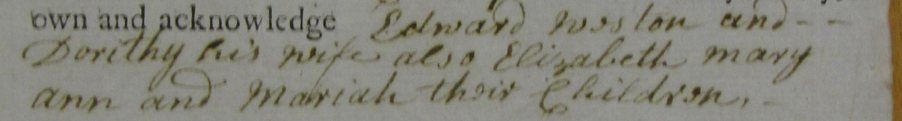 own and acknowledge Edward Weston and - -
Dorithy his wife also Elizabeth mary
ann and Mariah their Children. -